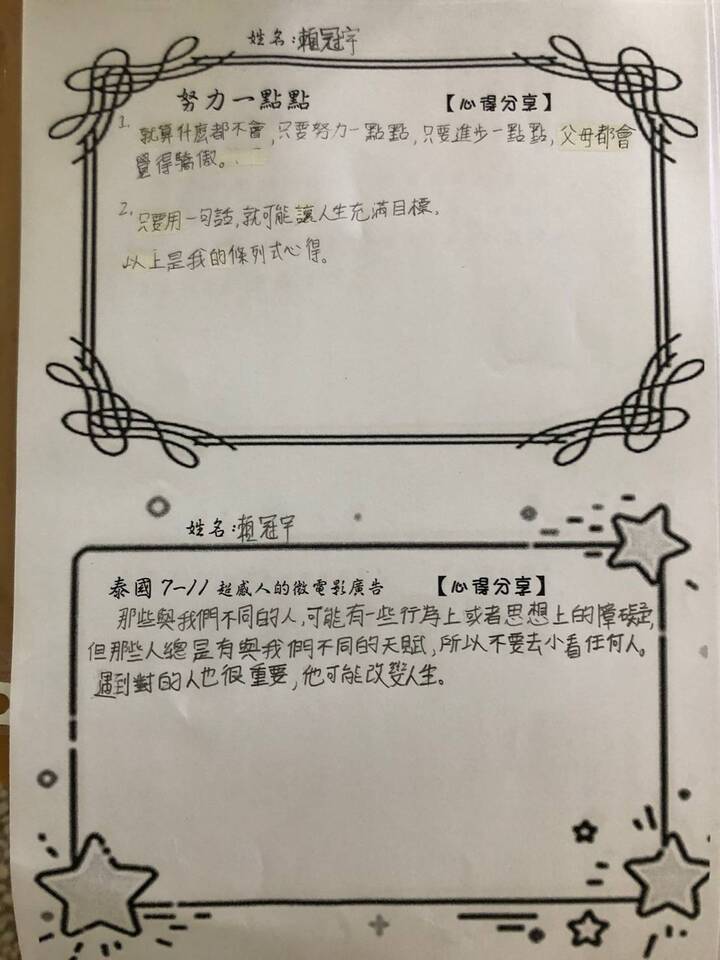 姓名:賴冠宇
努力一點點 【心得分享】
1. 就算什麼都不會,只要努力一點點,只要進步一點點,父母都會
覺得驕傲。
2. 只要用一句話,就可能讓人生充滿目標。
以上是我的條列式心得。
姓名:賴冠宇
泰國7-11超感人的微電影廣告 【心得分享】
那些與我們不同的人,可能有一些行為上或者思想上的障礙,
但那些人總是有與我們不同的天賦,所以不要去小看任何人。
遇到對的人也很重要,他可能改變人生。